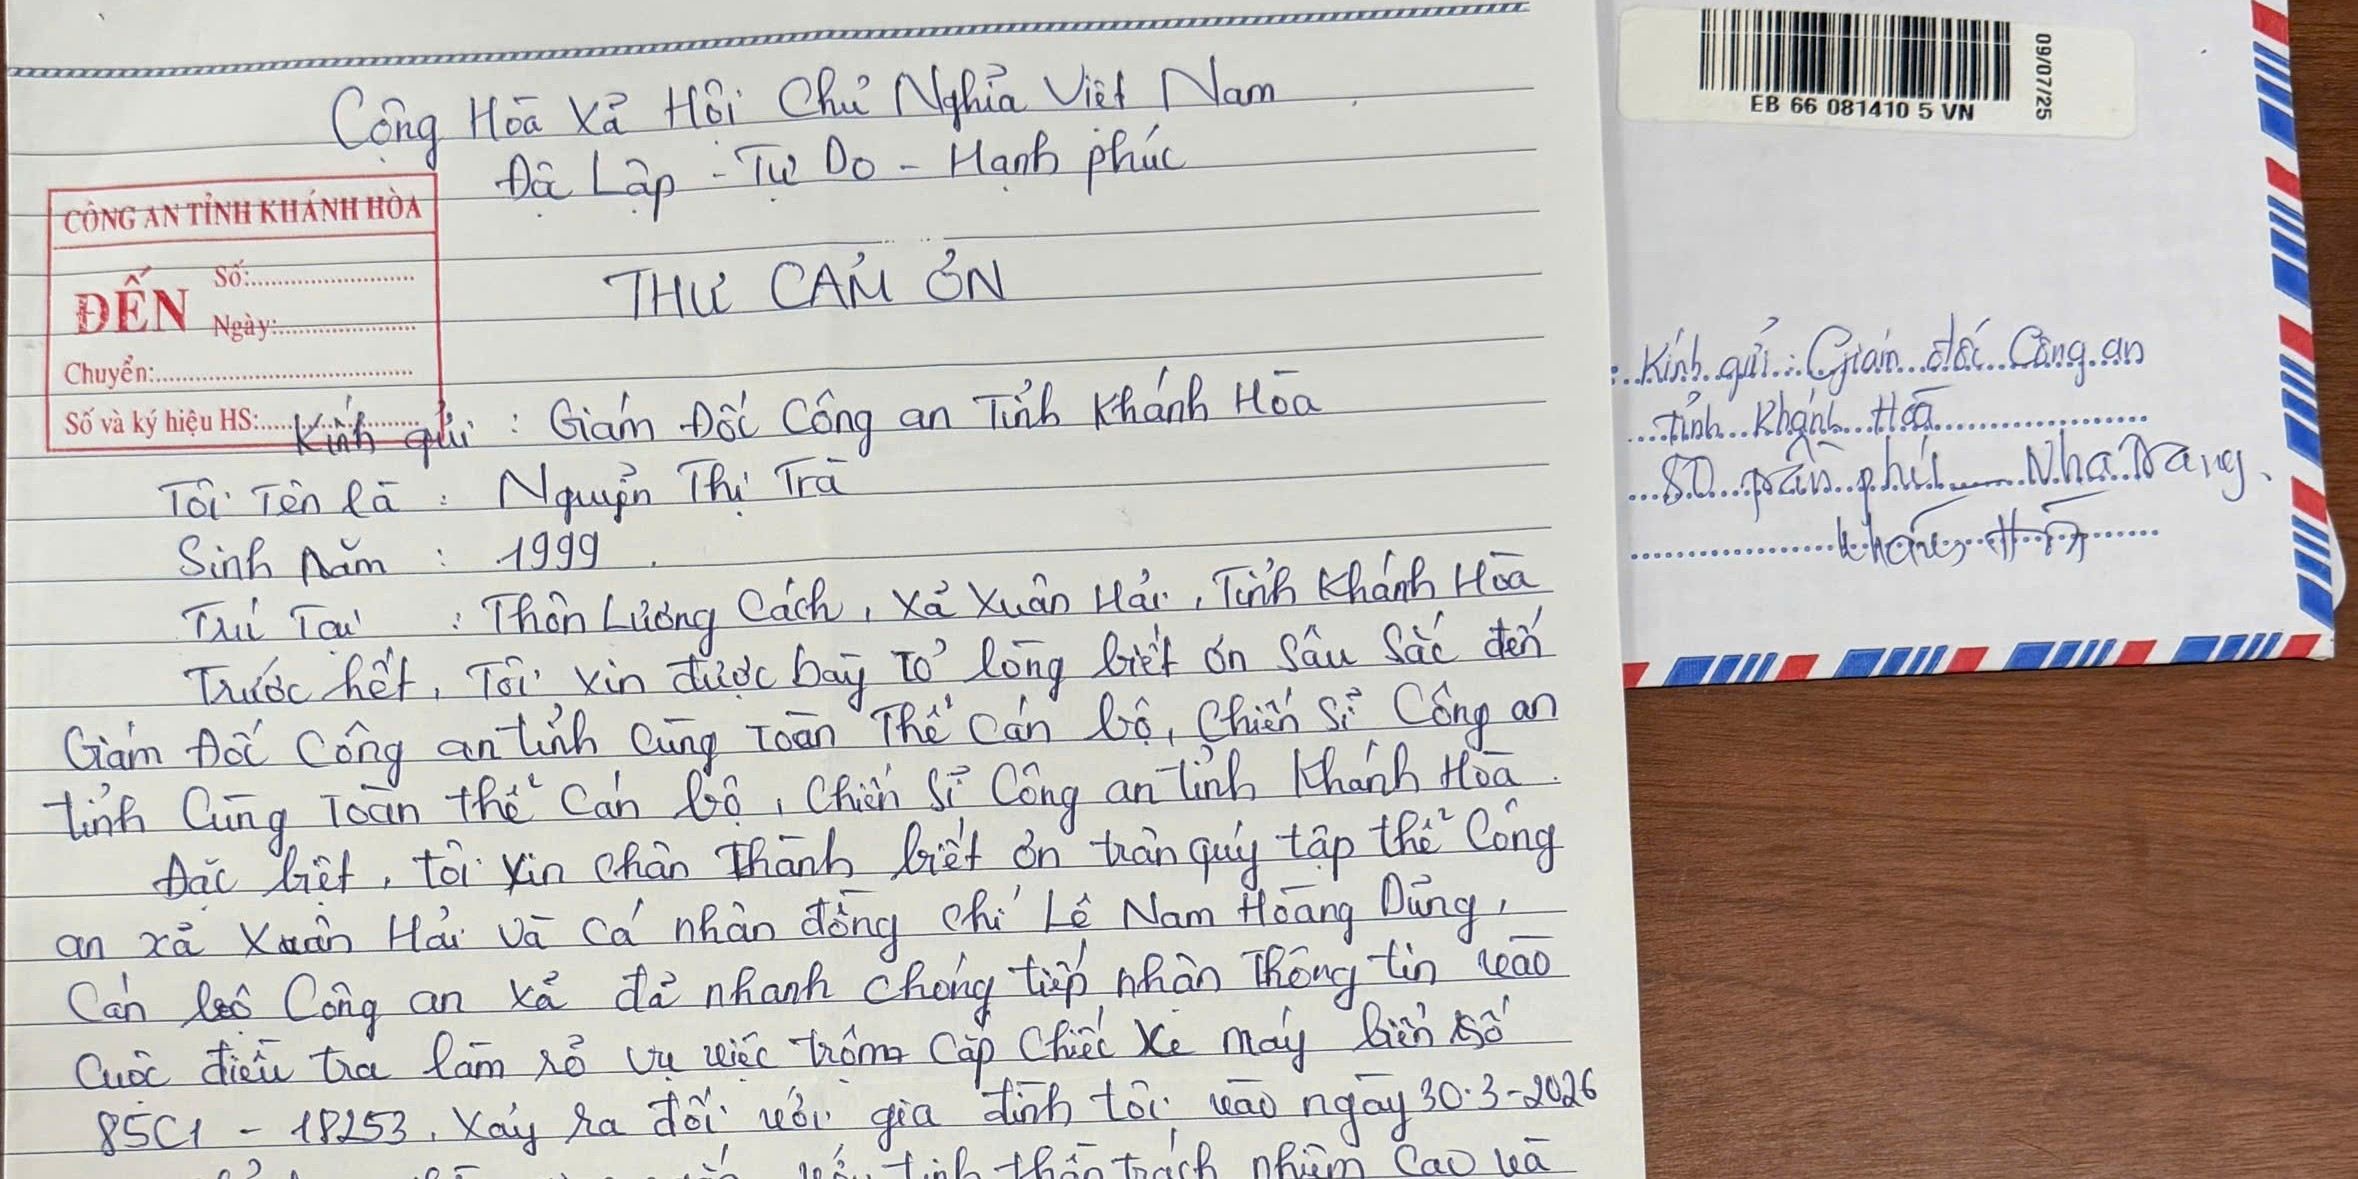 Cộng Hòa Xã Hội Chủ Nghĩa Việt Nam
Độc Lập - Tự Do - Hạnh phúc
THƯ CẢM ƠN
CÔNG AN TỈNH KHÁNH HÒA
ĐẾN
Số:
Ngày:
Chuyển:
Số và ký hiệu HS:
Kính gửi : Giám Đốc Công an Tỉnh Khánh Hòa
Tôi Tên là : Nguyễn Thị Trà
Sinh năm : 1999.
Trú Tại : Thôn Lương Cách, Xã Xuân Hải, Tỉnh Khánh Hòa
Trước hết, Tôi xin được bày tỏ lòng biết ơn sâu sắc đến
Giám Đốc Công an tỉnh cùng toàn Thể Cán bộ, Chiến Sĩ Công an
tỉnh Cùng Toàn thể Cán bộ, Chiến Sĩ Công an tỉnh Khánh Hòa.
Đặc biệt, tôi xin chân thành biết ơn trân quý tập thể Công
an xã Xuân Hải và cá nhân đồng chí Lê Nam Hoàng Dũng,
Cán bộ Công an xã đã nhanh chóng tiếp nhận Thông tin vào
Cuộc điều tra làm rõ vụ việc trộm cắp chiếc xe máy biển số
85C1 - 18253. Xảy ra đối với gia đình tôi vào ngày 30.3-2026
tinh thần trách nhiệm cao và
EB 66 081410 5 VN
09/07/25
Kính gửi: Giám đốc Công an
tỉnh Khánh Hòa
80 trần phú - Nha Trang,
Khánh Hòa